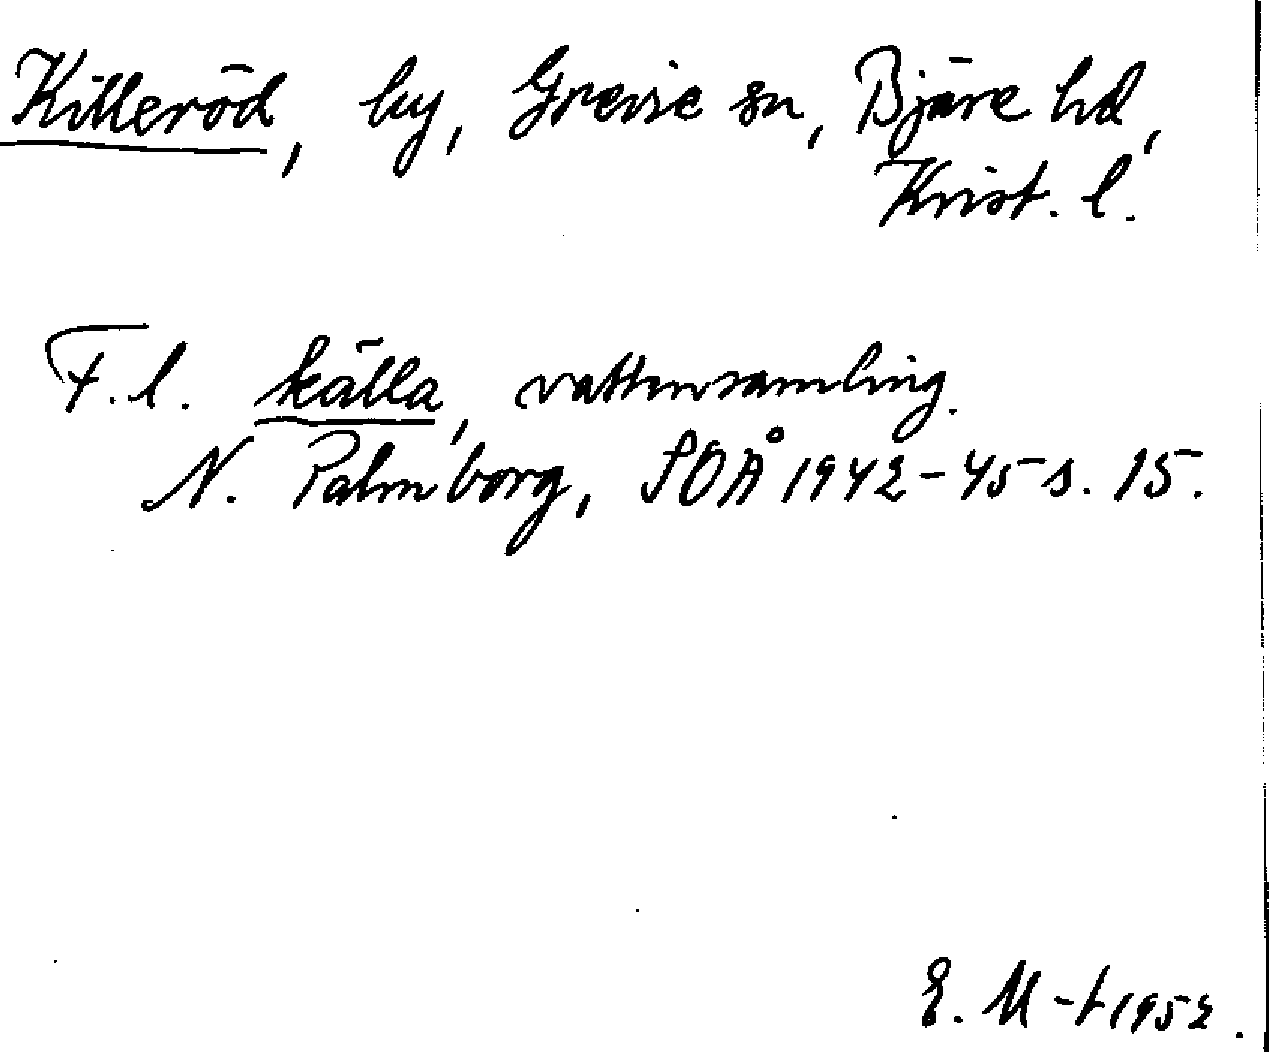 Killeröd, by, Grevie sn, Bjäre hd,
Krist. l.
F. l. källa, vattensamling.
N. Palmborg, SOÅ 1942-45 s. 15.
E. M-t 1952.